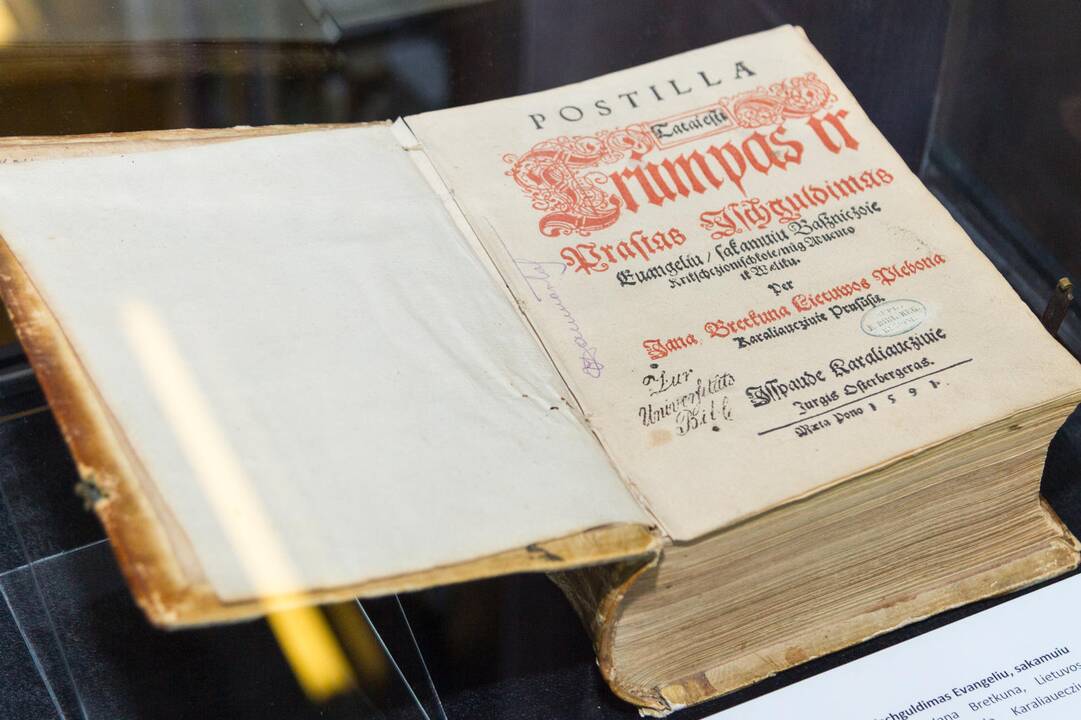 POSTILLA
Tatai esti
Trumpas ir
Prastas Ischguldimas
Euangeliu / sakamuiu Baßniczoie
Krikschczionischkoie / nůg Aduento
ik Waliku.
Per
Jana Bretkuna Lietuwos Plebona
Karaliaucziuie Prusůsu.
Zur
Universitäts
Bibl
Ißpaude Karaliaucziuie
Jurgis Osterbergeras.
Mæta Pono 1591.
Ischguldimas Evangeliu, sakamuiu
Jana Bretkuna, Lietuvos